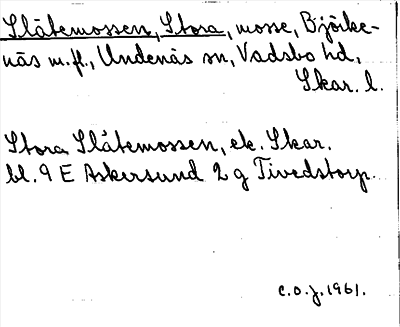 Slåtemossen, Stora, mosse, Björke-
näs m.fl., Undenäs sn, Vadsbo hd,
Skar. l.
Stora Slåtemossen, ek. Skar.
bl. 9 E Askersund 2 g Tivedstorp.
C.O.J. 1961.